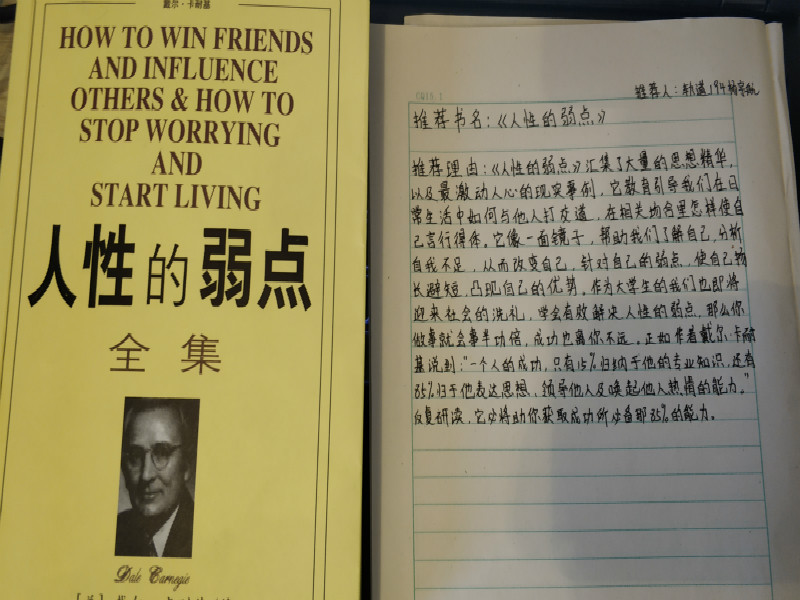 戴尔·卡耐基
HOW TO WIN FRIENDS
AND INFLUENCE
OTHERS & HOW TO
STOP WORRYING
AND
START LIVING
人性的弱点
全集
Dale Carnegie
推荐人：轨道194
推荐书名：《人性的弱点》
推荐理由：《人性的弱点》汇集了大量的思想精华，
以及最激动人心的现实事例，它教育引导我们在日
常生活中如何与他人打交道，在相关场合里怎样使自
己言行得体。它像一面镜子，帮助我们了解自己，分析
自我不足，从而改变自己，针对自己的弱点，使自己扬
长避短，凸现自己的优势。作为大学生的我们也即将
迎来社会的洗礼，学会有效解决人性的弱点，那么你
做事就会事半功倍，成功也离你不远。正如作者戴尔·卡耐
基说到："一个人的成功，只有15%归纳于他的专业知识，还有
85%归于他表达思想、领导他人及唤起他人热情的能力。"
反复研读，它必将助你获取成功所必备那85%的能力。